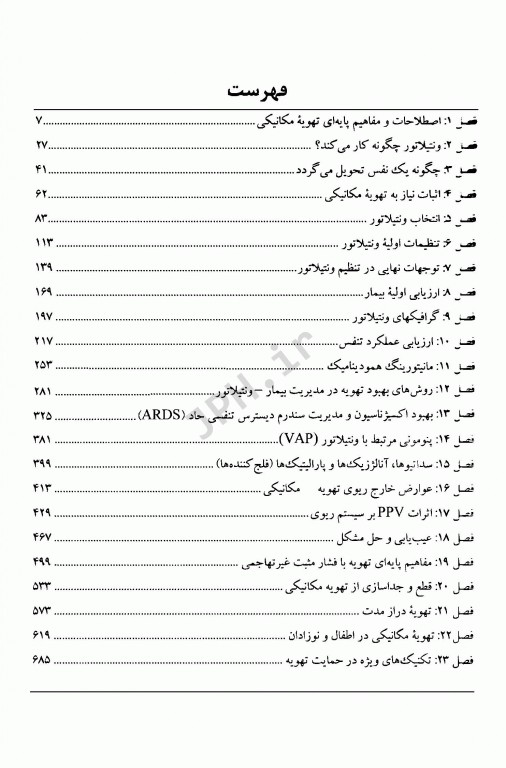 فهرست
فصل ۱: اصطلاحات و مفاهیم پایه‌ای تهویهٔ مکانیکی ۷
فصل ۲: ونتیلاتور چگونه کار می‌کند؟ ۲۷
فصل ۳: چگونه یک نفس تحویل می‌گردد ۴۱
فصل ۴: اثبات نیاز به تهویهٔ مکانیکی ۶۲
فصل ۵: انتخاب ونتیلاتور ۸۳
فصل ۶: تنظیمات اولیهٔ ونتیلاتور ۱۱۳
فصل ۷: توجهات نهایی در تنظیم ونتیلاتور ۱۳۹
فصل ۸: ارزیابی اولیهٔ بیمار ۱۶۹
فصل ۹: گرافیکهای ونتیلاتور ۱۹۷
فصل ۱۰: ارزیابی عملکرد تنفس ۲۱۷
فصل ۱۱: مانیتورینگ همودینامیک ۲۵۳
فصل ۱۲: روش‌های بهبود تهویه در مدیریت بیمار – ونتیلاتور ۲۸۱
فصل ۱۳: بهبود اکسیژناسیون و مدیریت سندرم دیسترس تنفسی حاد (ARDS) ۳۲۵
فصل ۱۴: پنومونی مرتبط با ونتیلاتور (VAP) ۳۸۱
فصل ۱۵: سداتیوها، آنالژزیک‌ها و پارالیتیک‌ها (فلج‌کننده‌ها) ۳۹۹
فصل ۱۶: عوارض خارج ریوی تهویه مکانیکی ۴۱۳
فصل ۱۷: اثرات PPV بر سیستم ریوی ۴۲۹
فصل ۱۸: عیب‌یابی و حل مشکل ۴۶۷
فصل ۱۹: مفاهیم پایه‌ای تهویه با فشار مثبت غیرتهاجمی ۴۹۹
فصل ۲۰: قطع و جداسازی از تهویه مکانیکی ۵۳۳
فصل ۲۱: تهویهٔ دراز مدت ۵۷۳
فصل۲۲: تهویهٔ مکانیکی در اطفال و نوزادان ۶۱۹
فصل ۲۳: تکنیک‌های ویژه در حمایت تهویه ۶۸۵
JPN.ir